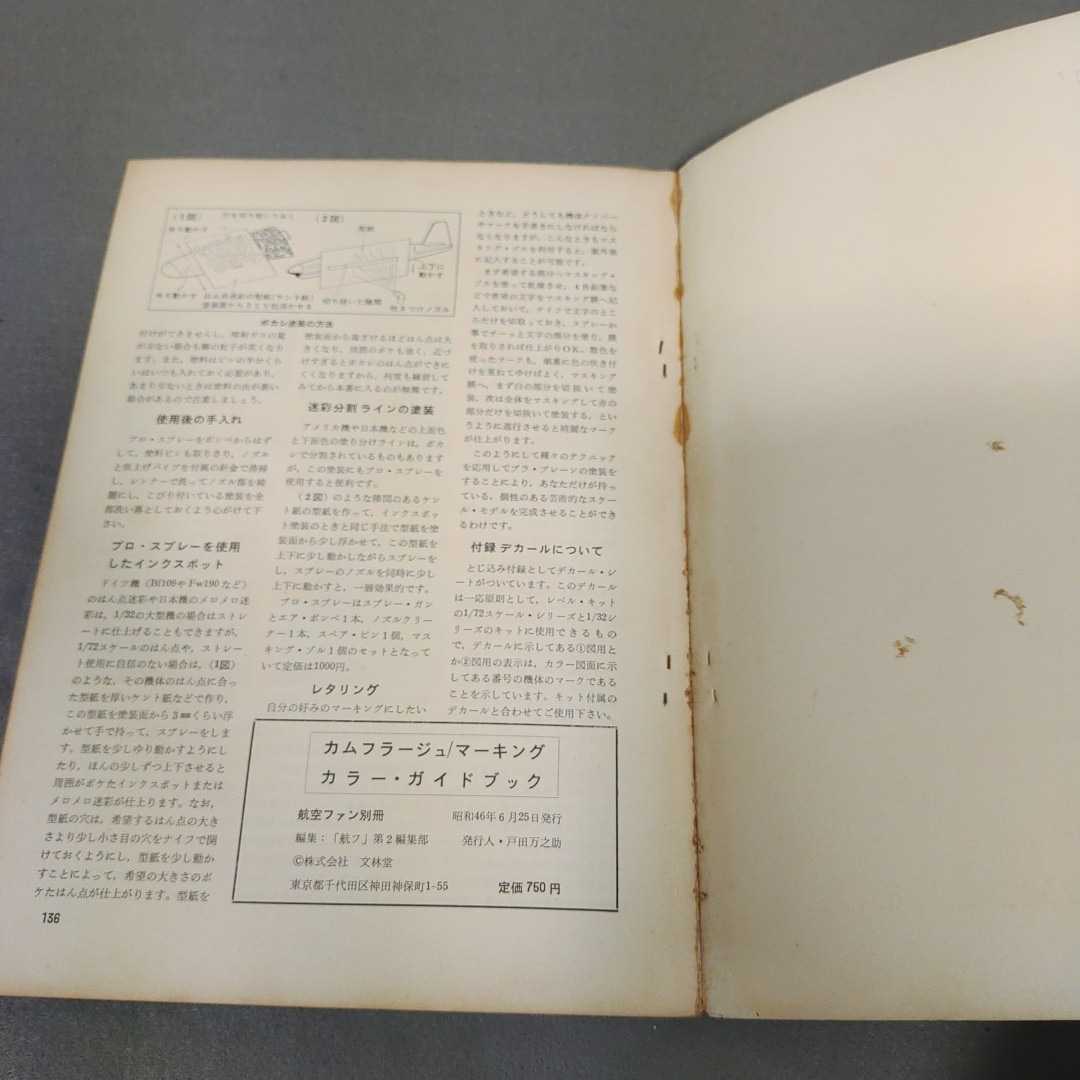 (1図)
(2図)
型紙
上下に
動かす
切り抜いた隙間
吹きつけノズル
ボカシ塗装の方法
付けができませんし、噴射ガスの量
が少ない場合も霧の粒子が荒くなり
ます。また、塗料はビンの半分くら
いはいつも入れておく必要があり、
あまり少ないときは塗料の出が悪い
場合があるので注意しましょう。
使用後の手入れ
プロ・スプレーをボンベからはず
して、塗料ビンも取りさり、ノズル
と吸上げパイプを付属の針金で掃除
し、シンナーで洗ってノズル部を綺
麗にし、こびり付いている塗装を全
部洗い落としておくよう心がけて下
さい。
プロ・スプレーを使用
したインクスポット
ドイツ機(Bf109やFw190など)
のはん点迷彩や日本機のメロメロ迷
彩は、1/32の大型機の場合はストレ
ートに仕上げることもできますが、
1/72スケールのはん点や、ストレー
ト使用に自信のない場合は、(1図)
のような、その機体のはん点に合っ
た型紙を厚いケント紙などで作り、
この型紙を塗装面から3㎜くらい浮
かせて手で持って、スプレーをしま
す。型紙を少しゆり動かすようにし
たり、ほんの少しずつ上下させると
周囲がボケたインクスポットまたは
メロメロ迷彩が仕上ります。なお、
型紙の穴は、希望するはん点の大き
さより少し小さ目の穴をナイフで開
けておくようにし、型紙を少し動か
すことによって、希望の大きさのボ
ケたはん点が仕上がります。型紙を
塗装面から遠ざけるほどはん点は大
きくなり、周囲のボケも強く、近づ
けすぎるとボカシのはん点ができに
くくなりますから、何度も練習して
みてから本番に入るのが無難です。
迷彩分割ラインの塗装
アメリカ機や日本機などの上面色
と下面色の塗り分けラインは、ボカ
シで分割されているものもあります
が、この塗装にもプロ・スプレーを
使用すると便利です。
(2図)のような隙間のあるケン
ト紙の型紙を作って、インクスポッ
ト塗装のときと同じ手法で型紙を塗
装面から少し浮かせて、この型紙を
上下に少し動かしながらスプレーを
し、スプレーのノズルを同時に少し
上下に動かすと、一層効果的です。
プロ・スプレーはスプレー・ガン
とエア・ボンベ1本、ノズルクリー
ナー1本、スペア・ビン1個、マス
キング・ゾル1個のセットとなって
いて定価は1000円。
レタリング
自分の好みのマーキングにしたい
ときなど、どうしても機体ナンバー
やマークを手書きにしなければなら
なくなりますが、こんなときもマス
キング・ゾルを利用すると、案外楽
に記入することが可能です。
まず希望する部分へマスキング・
ゾルを塗って乾燥させ、4B鉛筆な
どで希望の文字をマスキング膜へ記
入しておいて、ナイフで文字のとこ
ろだけを切取っておき、スプレーか
筆でサーッと文字の部分を塗り、膜
を取りされば仕上がりOK。数色を
使ったマークも、順番に色の吹き付
けを重ねてゆけばよく、マスキング
膜へ、まず白の部分を切抜いて塗
装、次は全体をマスキングして赤の
部分だけを切抜いて塗装する、とい
うように進行させると綺麗なマーク
が仕上がります。
このようにして種々のテクニック
を応用してプラ・プレーンの塗装を
することにより、あなただけが持っ
ている、個性のある芸術的なスケー
ル・モデルを完成させることができ
るわけです。
付録デカールについて
とじ込み付録としてデカール・シ
ートがついています。このデカール
は一応原則として、レベル・キット
の1/72スケール・シリーズと1/32シ
リーズのキットに使用できるもの
で、デカールに示してある①図用と
か②図用の表示は、カラー図面に示
してある番号の機体のマークである
ことを示しています。キット付属の
デカールと合わせてご使用下さい。
カムフラージュ/マーキング
カラー・ガイドブック
航空ファン別冊 昭和46年6月25日発行
編集:「航フ」第2編集部 発行人・戸田万之助
©株式会社 文林堂
東京都千代田区神田神保町1-55 定価750円
136